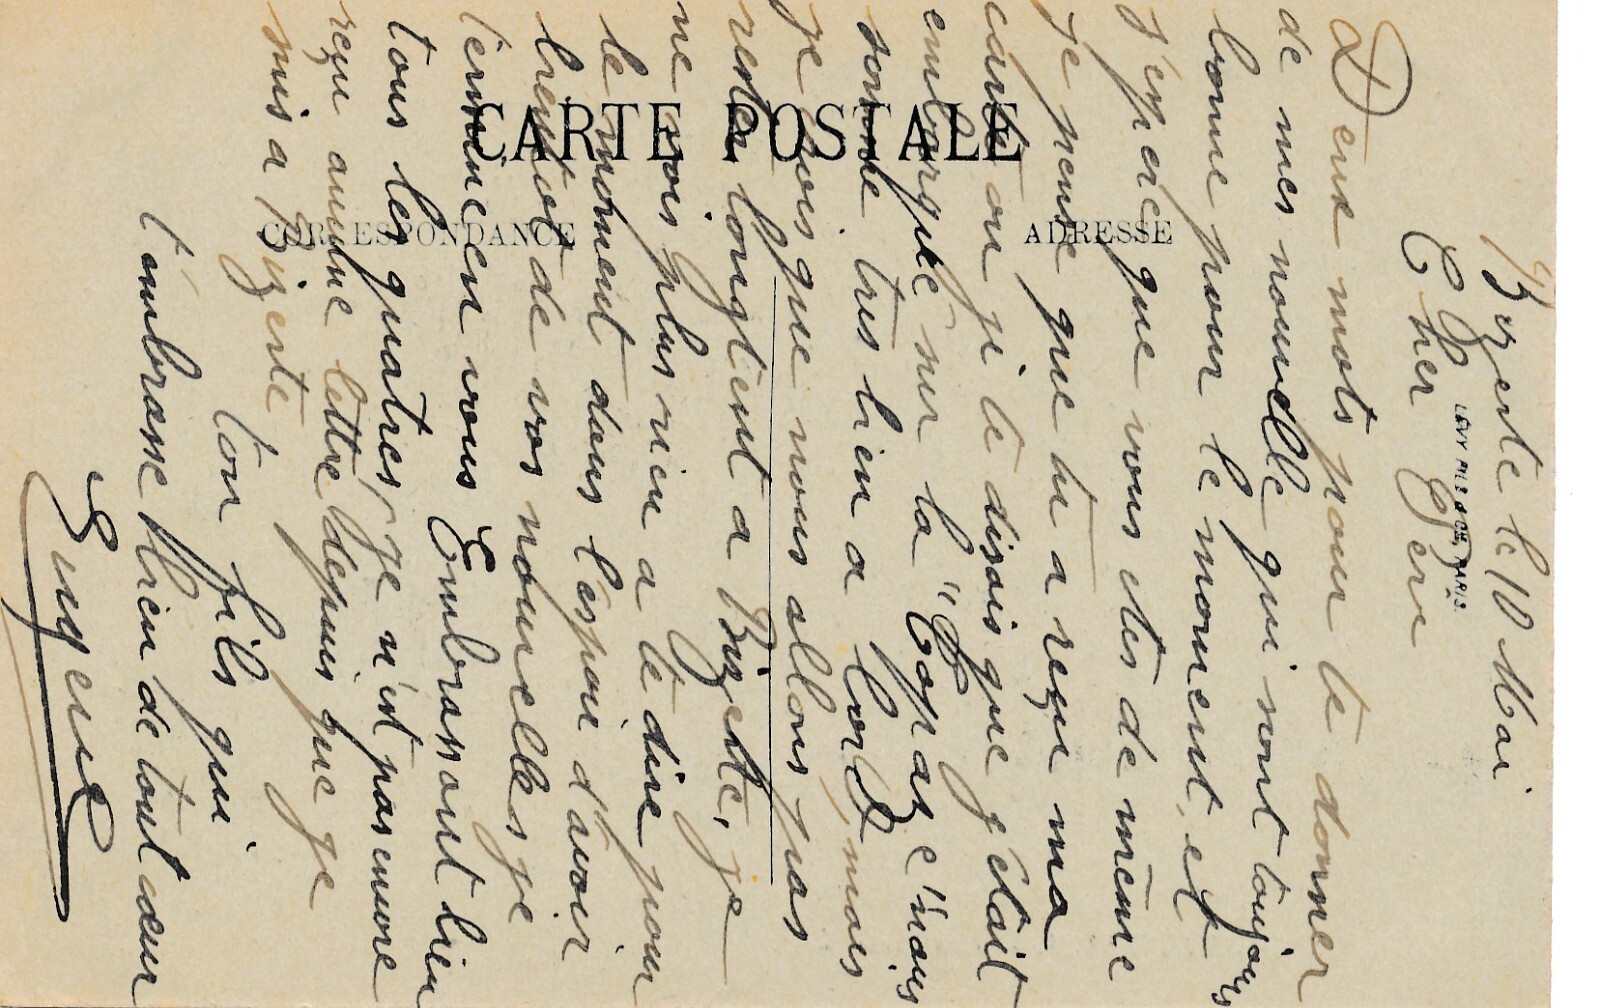 Bizerte le 10 Mai
Cher Père
Deux mots pour te donner
de mes nouvelle qui sont toujours
bonne pour le moment, et
j'espère que vous êtes de même
je pense que tu a reçu ma
carte ou je te disais que j'était
embarquée sur la "Topaze" nous
somme tres bien a bord, mais
je crois que nous allons pas
rester longtemt a Bizerte, je
ne vois plus rien a te dire pour
le moment dans l'espoir d'avoir
bientot de vos nouvelles je
termine en vous Embrassant bien
tous les quatres, je n'ait pas encore
reçu aucune lettre depuis que je
suis a Bizerte
ton fils qui
t'embrasse bien de tout cœur
Eugene
CARTE POSTALE
CORRESPONDANCE
ADRESSE
LEVY FILS & CIE, PARIS.